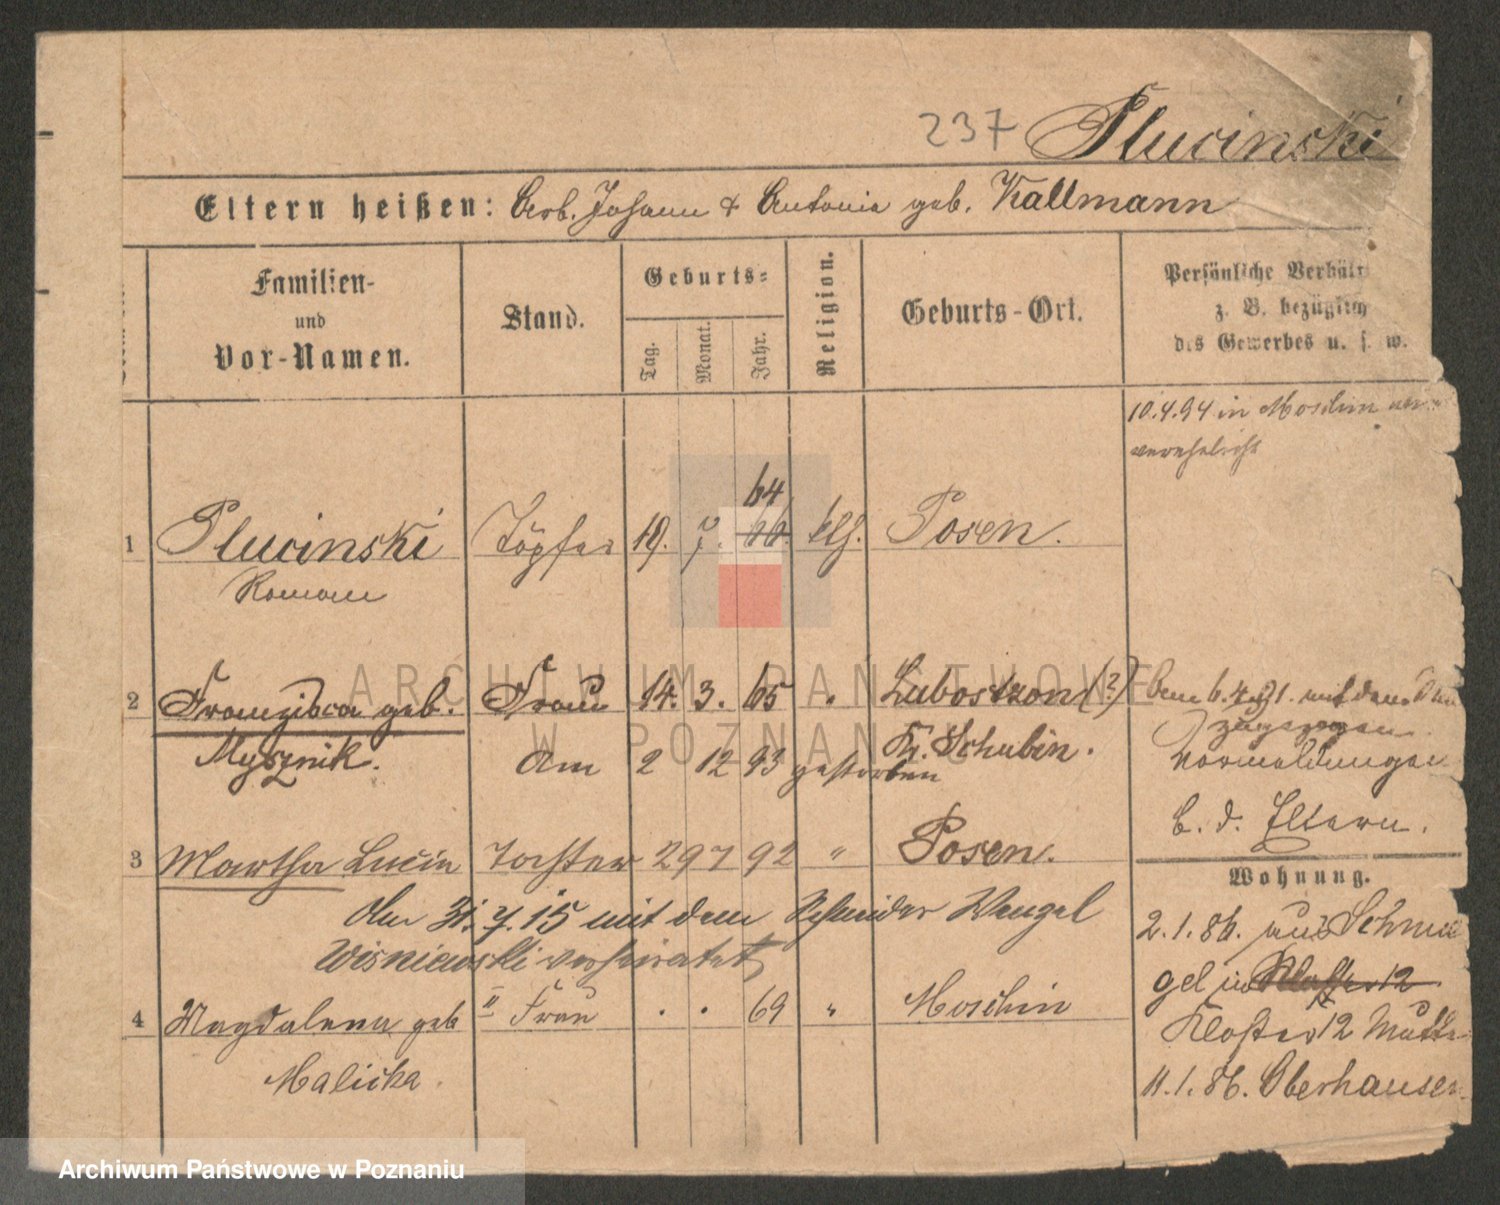 237 Plucinski
Eltern heißen: Arb. Johann & Antonie geb. Kallmann
Familien-
und
Vor-Namen.
Stand.
Geburts-
Tag.
Monat.
Jahr.
Religion.
Geburts-Ort.
Persönliche Verhält
z. B. bezüglich
des Gewerbes u. s. w.
10.4.94 in Moschin
verehelicht
64
1 Plucinski Töpfer 19. 7. 66. klg. Posen.
Roman
2 Franziska geb. Frau 14. 3. 65 " Lubostron (?)
Mysznik. Kr. Schubin.
Am 2 12 93 gestorben
am 6.4.91. mit dem
zugezogen
Vormeldungen
b. d. Eltern.
3 Martha Lucie Tochter 29 7 92 " Posen.
Am 31.7.15 mit dem Schneider Wenzel
Wisniewski verheiratet
4 Magdalena geb II Frau . . 69 " Moschin
Malicka.
Wohnung.
2.1.86. aus Schmie
gel in Kloster 12
Kloster 12 Mutte
11.1.86. Oberhausen
ARCHIWUM PAŃSTWOWE
W POZNANIU
Archiwum Państwowe w Poznaniu